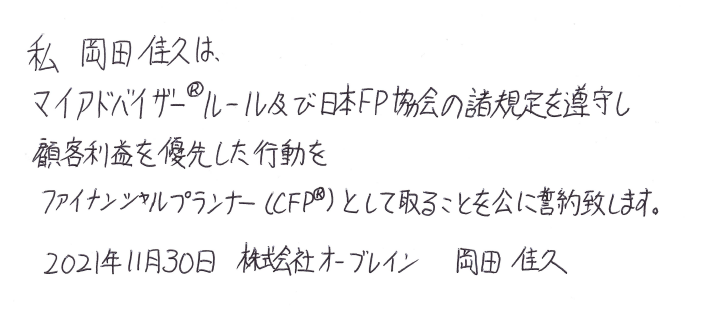 私 岡田佳久は、
マイアドバイザー®ルール及び日本FP協会の諸規定を遵守し
顧客利益を優先した行動を
ファイナンシャルプランナー(CFP®)として取ることを公に誓約致します。
2021年11月30日 株式会社オーブレイン 岡田 佳久